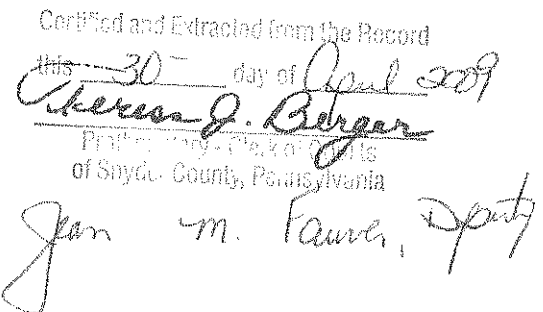 Certified and Extracted from the Record
this 30 day of April 2009
Theresa J. Berger
Prothonotary - Clerk of Courts
of Snyder County, Pennsylvania
Jean M. Fauver, Deputy